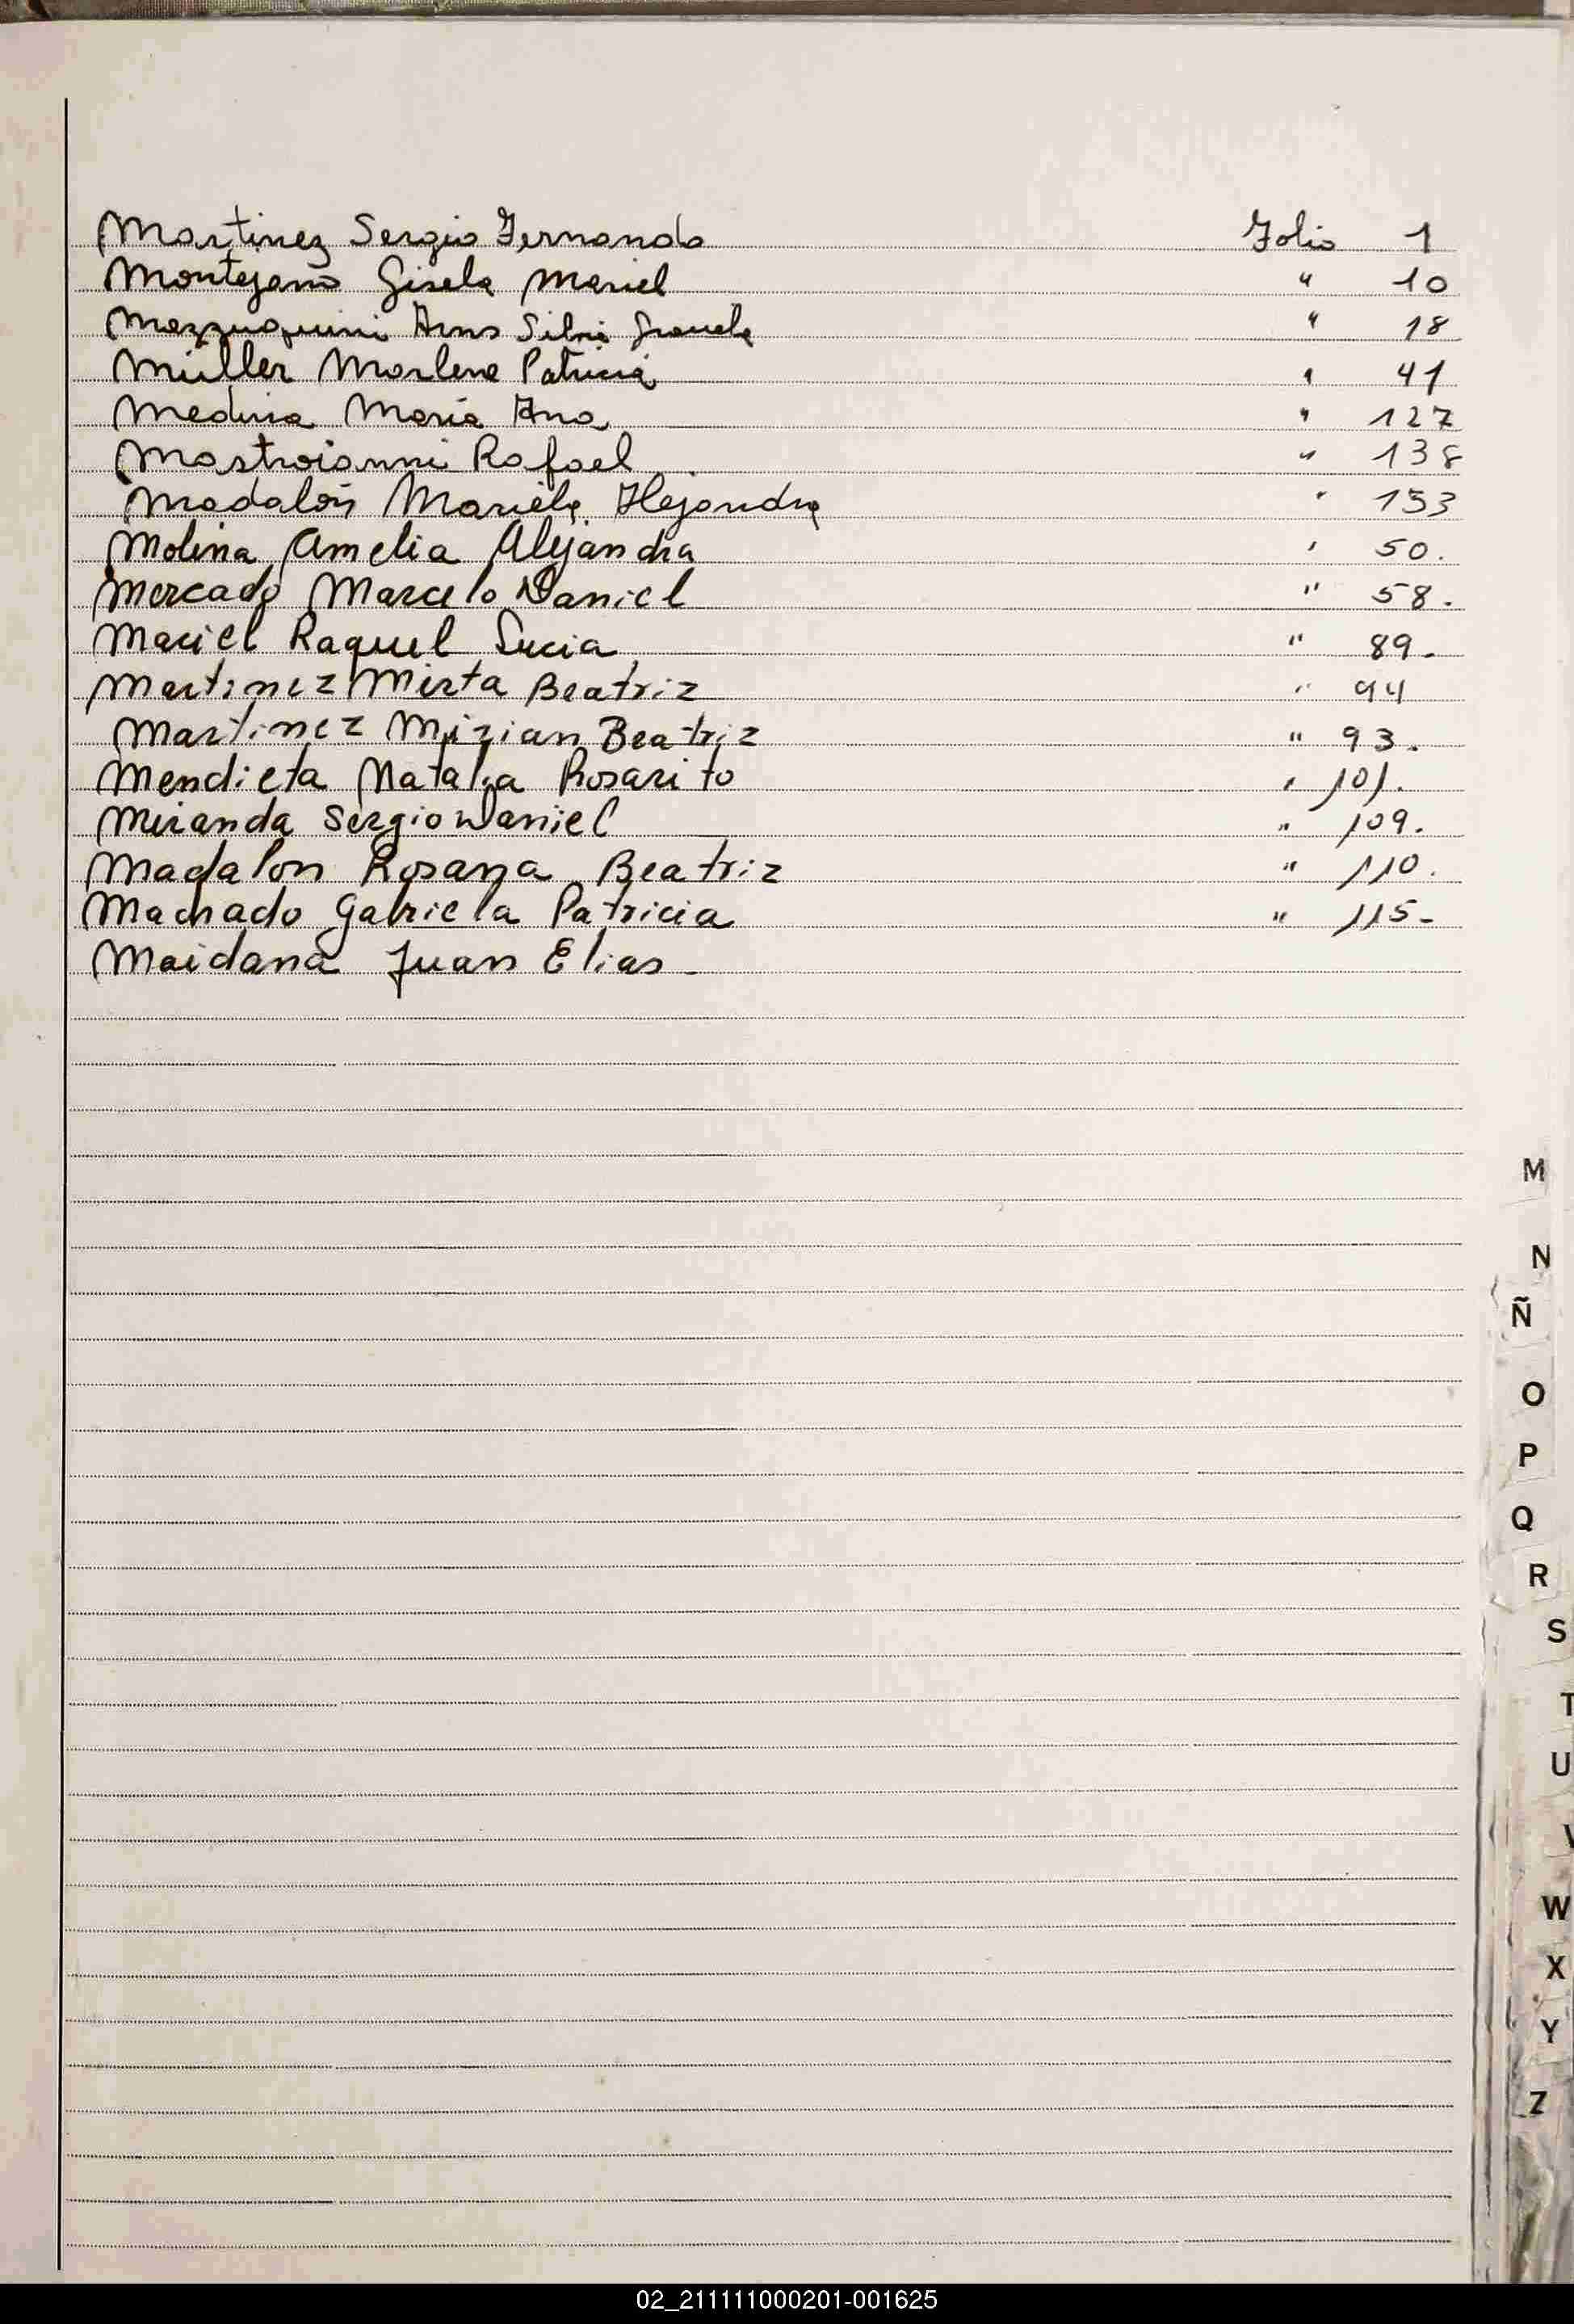 Martinez Sergio Fernando Folio 1
Montejano Gisela Mariel " 10
Mazzuquini Silvia " 18
Müller Marlene Patricia " 41
Medina María Ana " 127
Mastroianni Rafael " 138
Madalón Mariela Alejandra " 153
Molina Amelia Alejandra " 50.
Mercado Marcelo Daniel " 58.
Maciel Raquel Lucia " 89.
Martinez Mirta Beatriz " 94
Martinez Mirian Beatriz " 93.
Mendieta Natalia Rosarito " 101.
Miranda Sergio Daniel " 109.
Madalon Rosana Beatriz " 110.
Machado Gabriela Patricia " 115-
Maidana Juan Elias
M
N
Ñ
O
P
Q
R
S
T
U
V
W
X
Y
Z
02_211111000201-001625